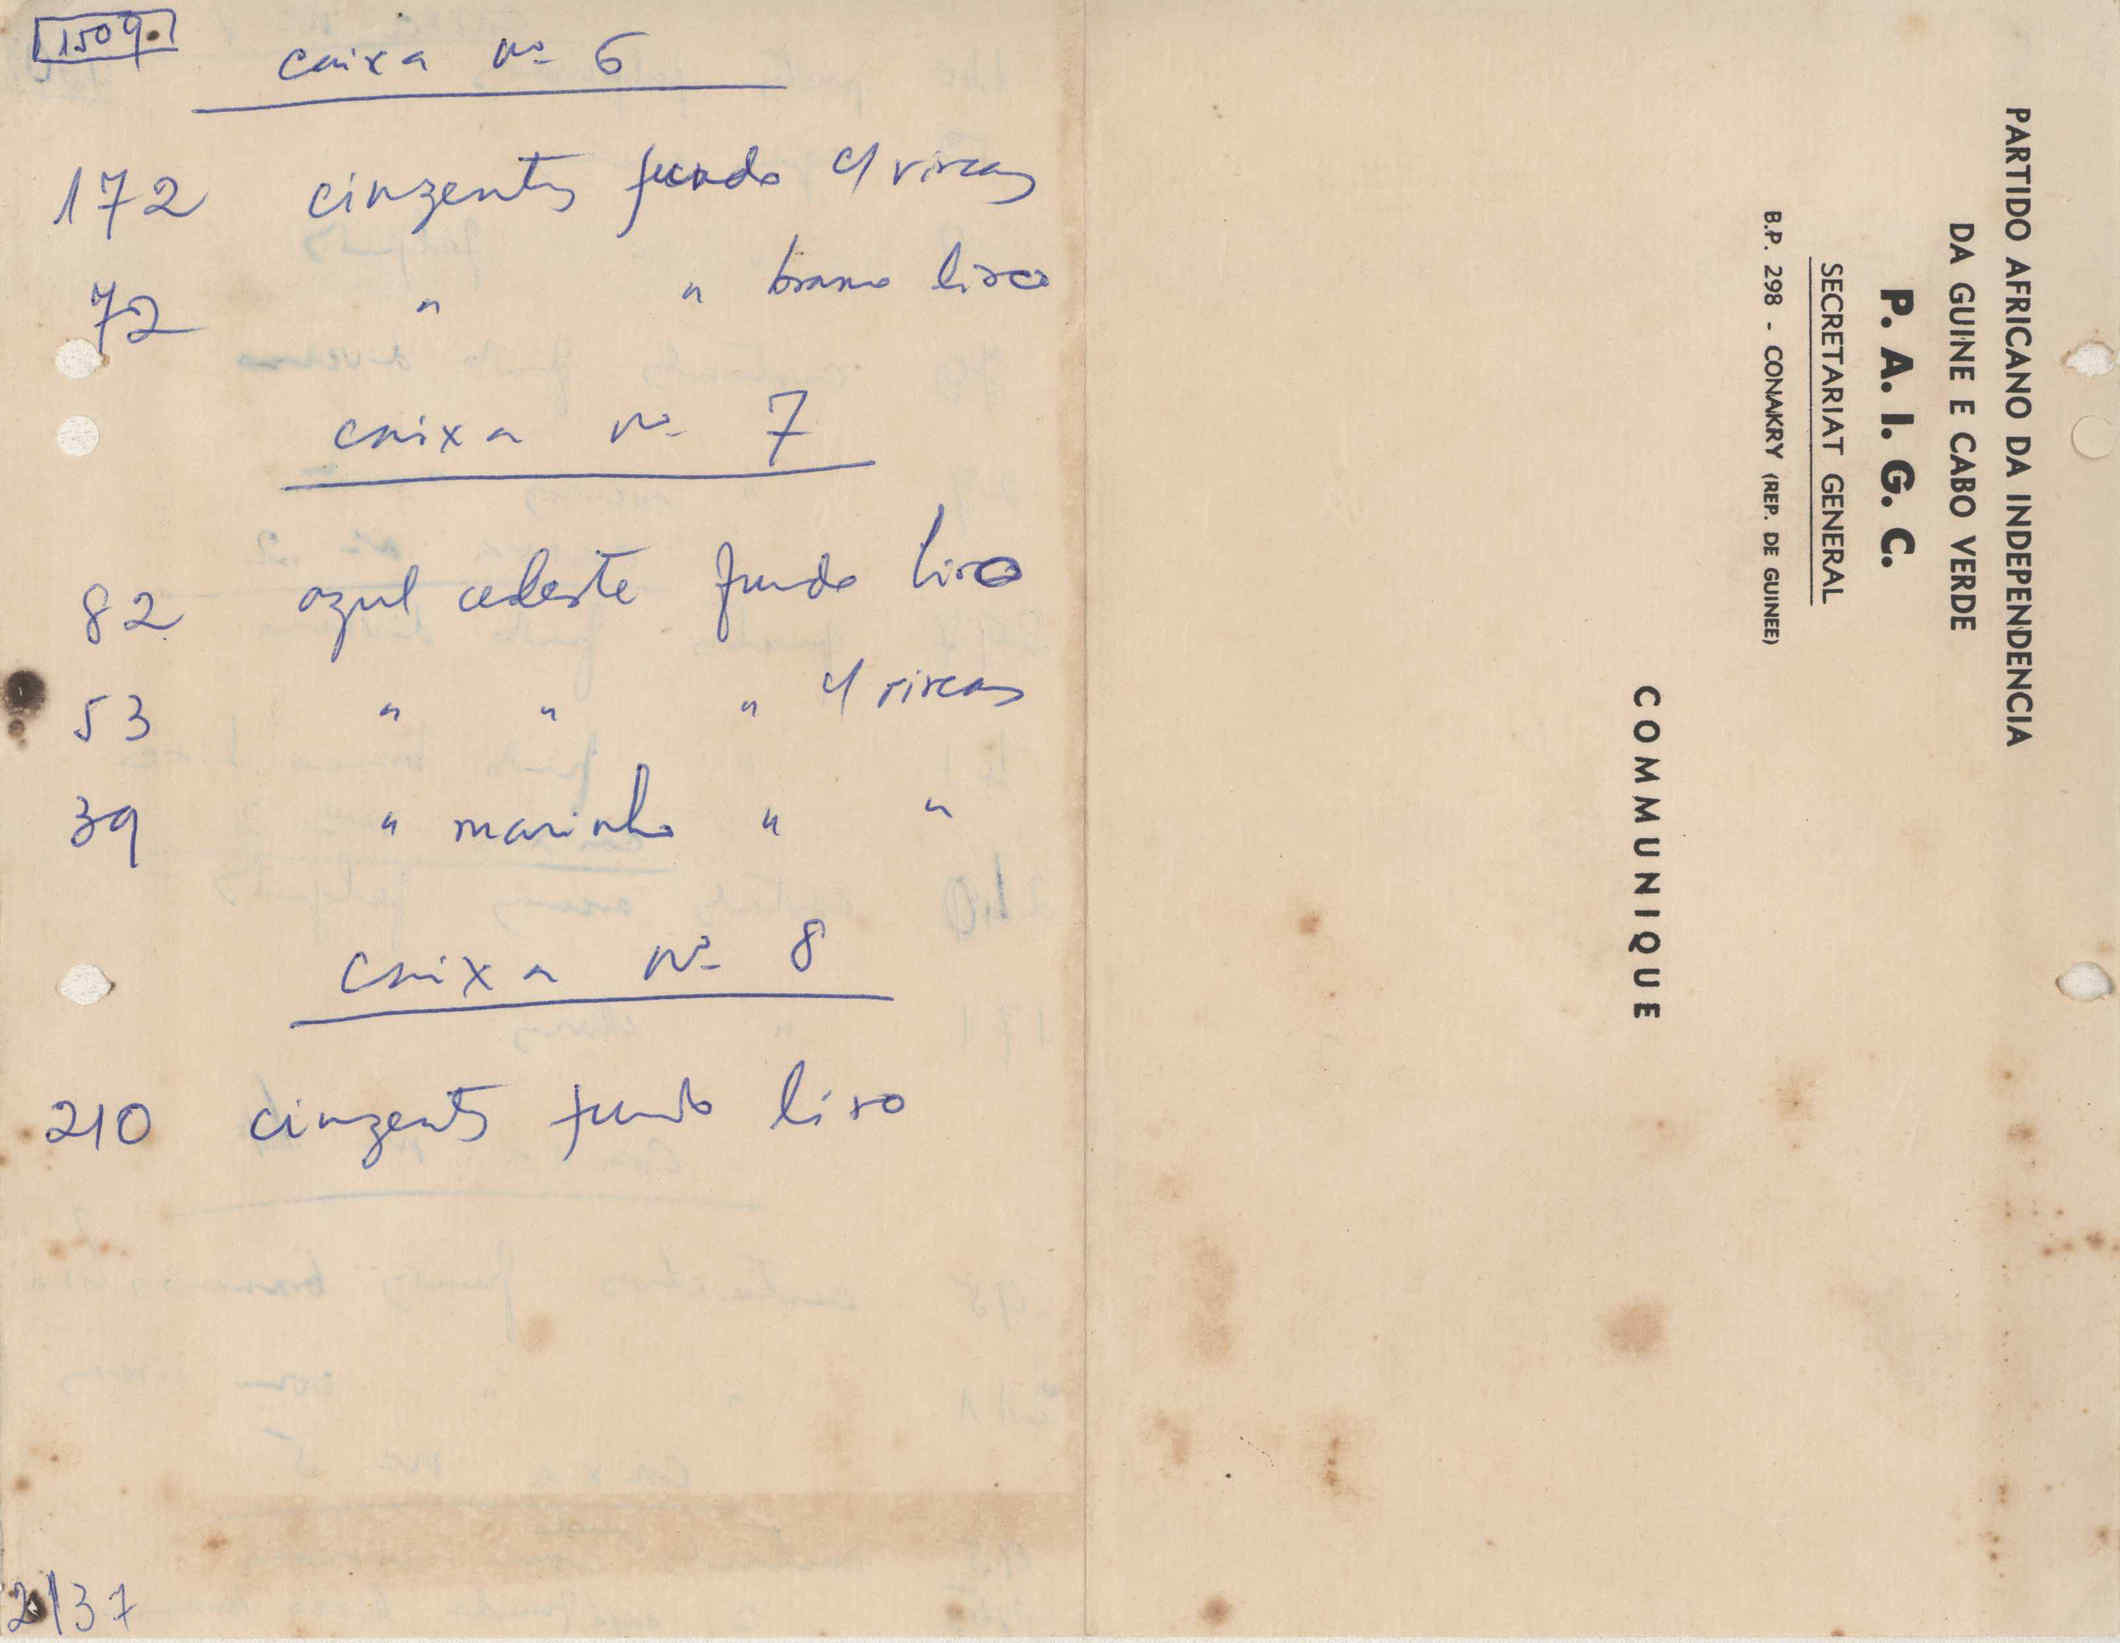 1509.
caixa nº 6
172 cinzentos fundo c/ riscas
72 " " branco liso
caixa nº 7
82 azul celeste fundo liso
53 " " " c/ riscas
39 " marinho " "
caixa nº 8
210 cinzentos fundo liso
2137
PARTIDO AFRICANO DA INDEPENDENCIA
DA GUINE E CABO VERDE
P. A. I. G. C.
SECRETARIAT GENERAL
B.P. 298 - CONAKRY (REP. DE GUINEE)
COMMUNIQUE